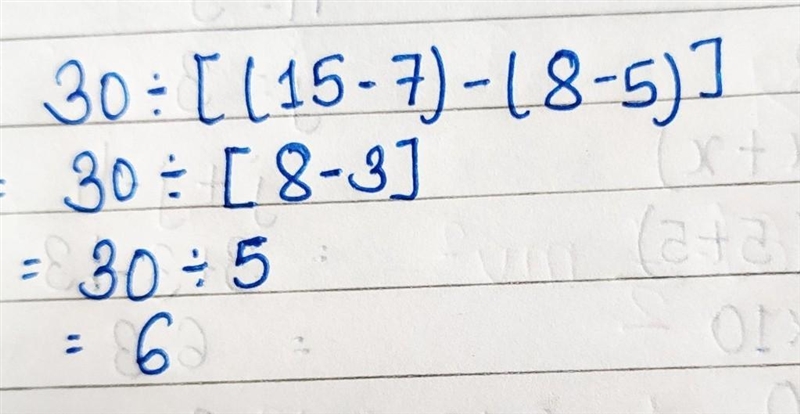 30 ÷ [(15 - 7) - (8 - 5)]
= 30 ÷ [8 - 3]
= 30 ÷ 5
= 6